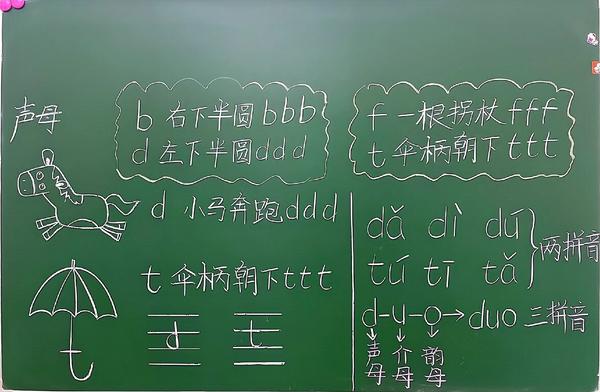 声母
b 右下半圆 b b b
d 左下半圆 d d d
f 一根拐杖 f f f
t 伞柄朝下 t t t
d 小马奔跑 d d d
t 伞柄朝下 t t t
d t
dǎ dì dú
tú tī tǎ
两拼音
d-u-o→duo 三拼音
声母 介母 韵母